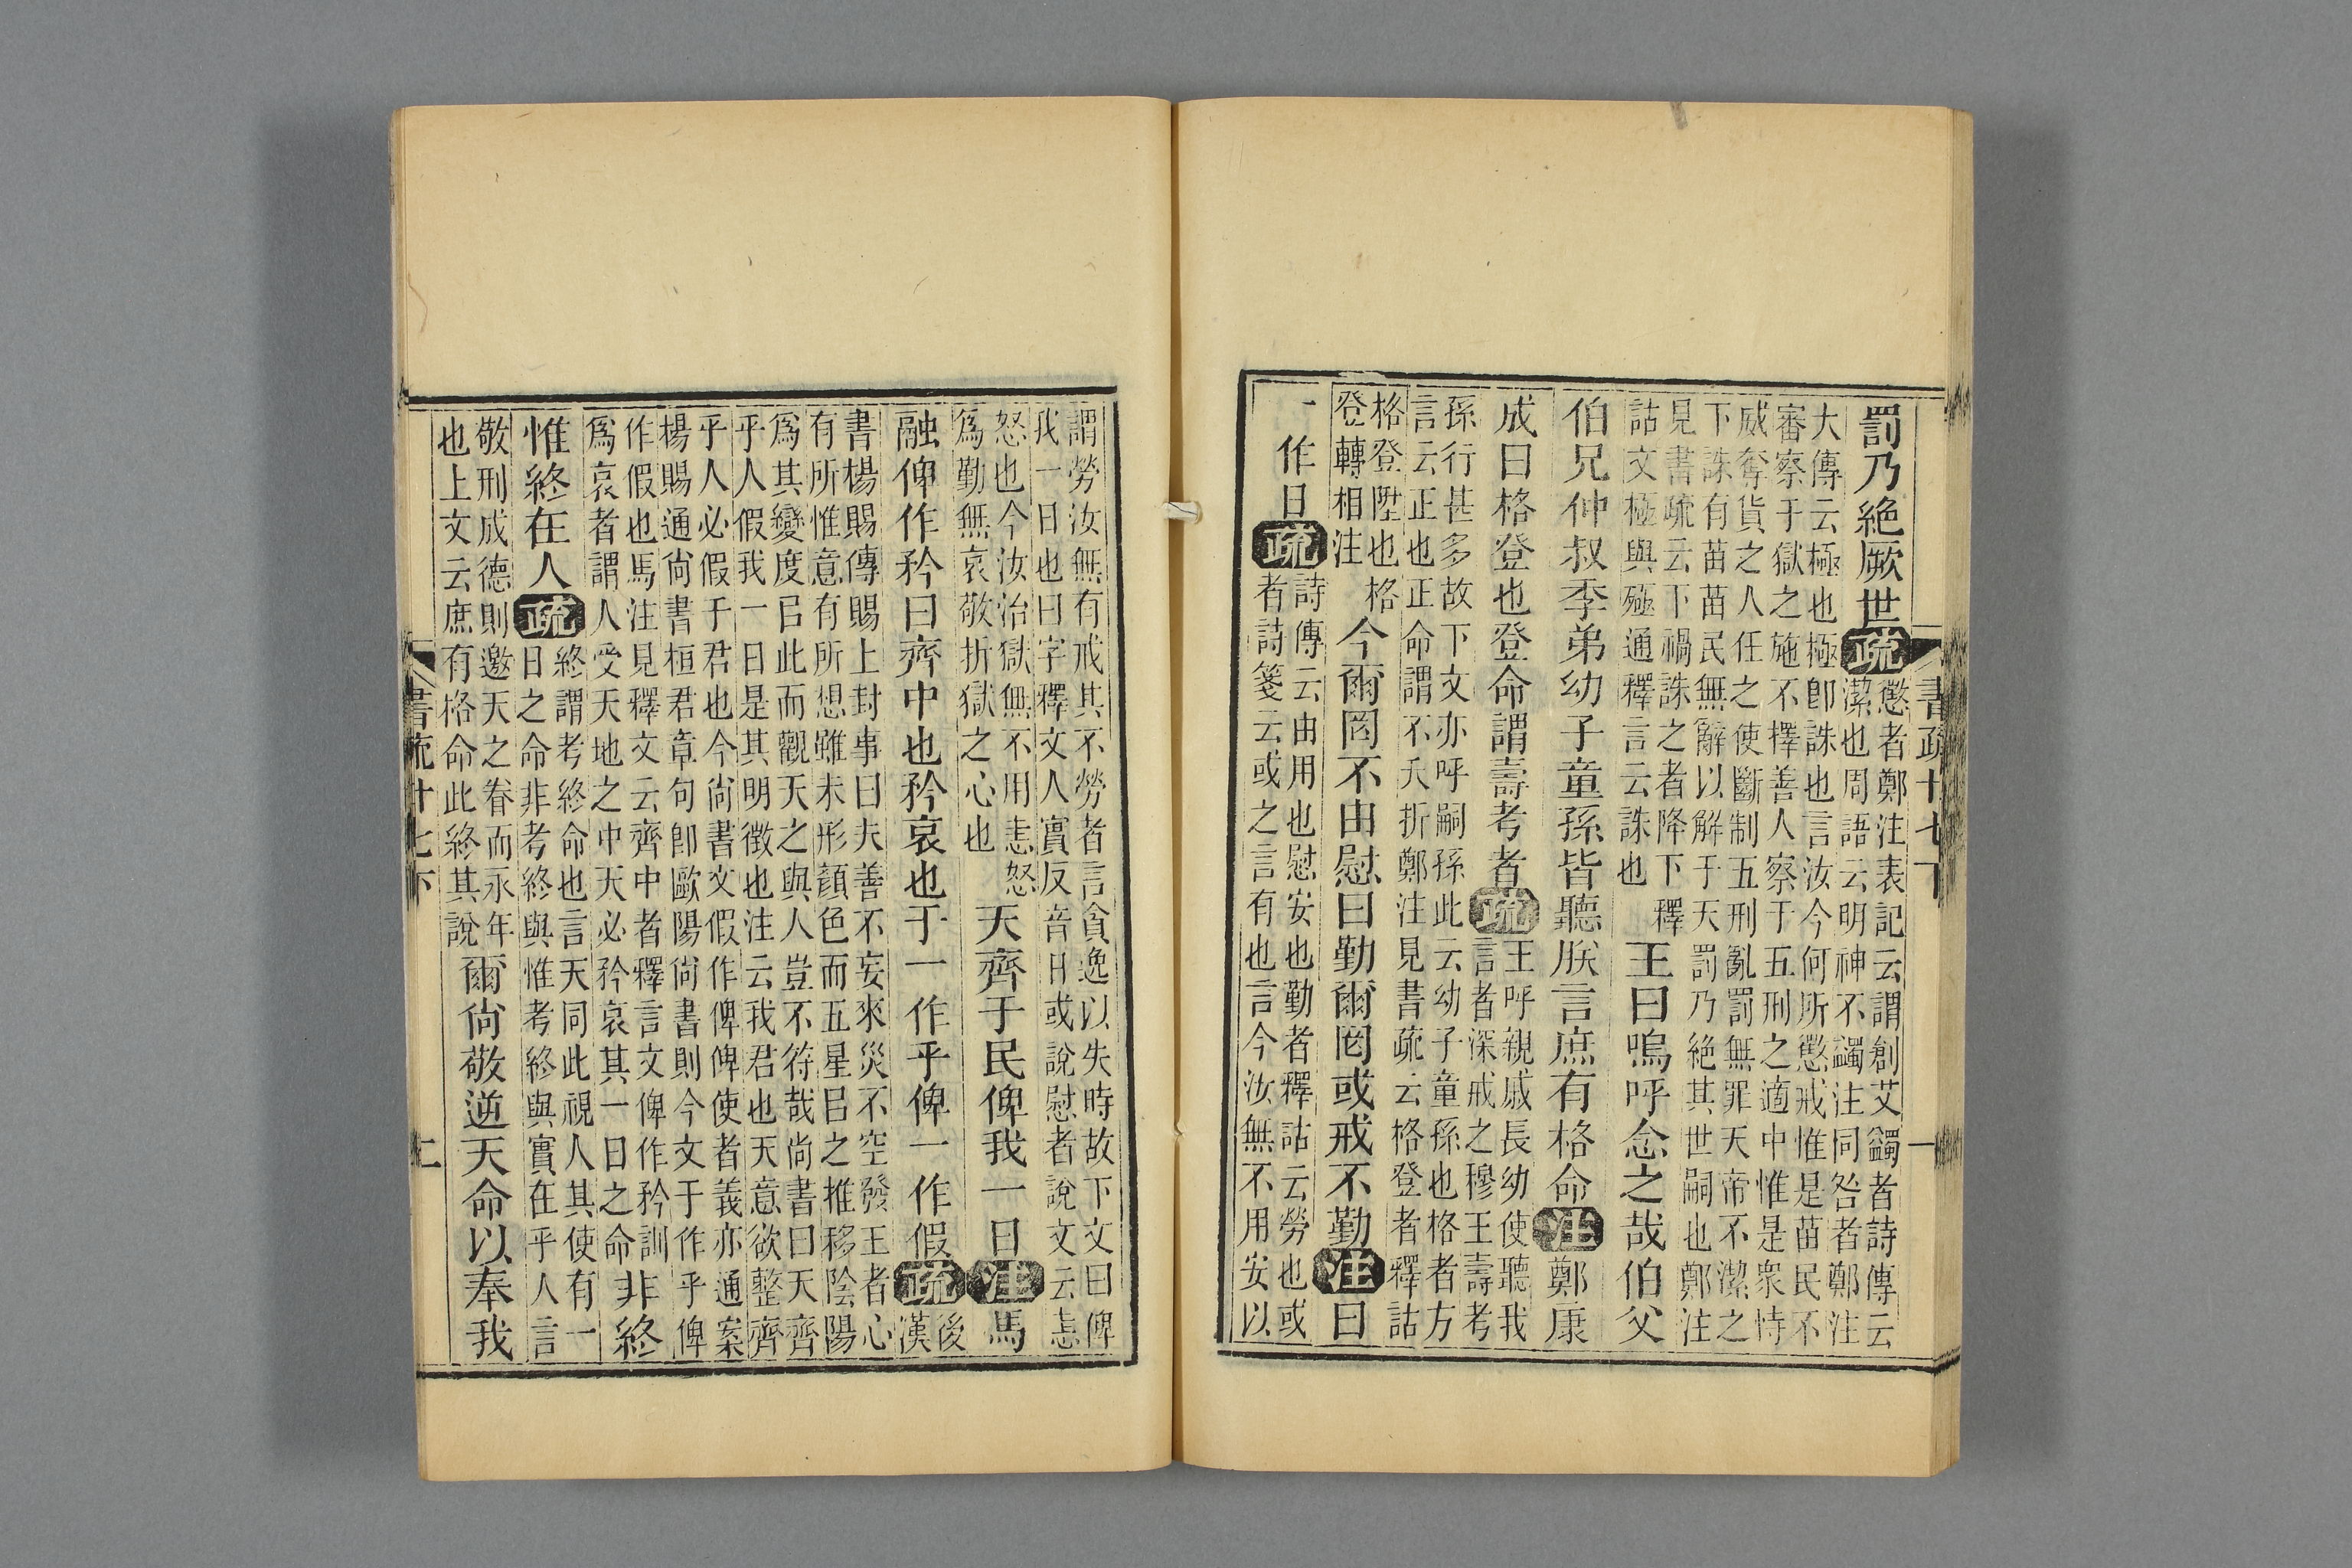 書疏十七下 一
罰乃絕厥世疏懲者鄭注表記云謂創艾蠲者詩傳云
潔也周語云明神不蠲注同咎者鄭注
大傳云極也極卽誅也言汝今何所懲戒惟是苗民不
審察于獄之施不擇善人察于五刑之適中惟是衆恃
威奪貨之人任之使斷制五刑亂罰無罪天帝不潔之
下誅有苗苗民無辭以解于天罰乃絕其世嗣也鄭注
見書疏云下禍誅之者降下釋
詁文極與殛通釋言云誅也
王曰嗚呼念之哉伯父
伯兄仲叔季弟幼子童孫皆聽朕言庶有格命注鄭康
成曰格登也登命謂壽考者疏王呼親戚長幼使聽我
言者深戒之穆王壽考
孫行甚多故下文亦呼嗣孫此云幼子童孫也格者方
言云正也正命謂不夭折鄭注見書疏云格登者釋詁
格登陞也格
登轉相注
今爾罔不由慰曰勤爾罔或戒不勤注曰
一作日疏詩傳云由用也慰安也勤者釋詁云勞也或
者詩箋云或之言有也言今汝無不用安以
謂勞汝無有戒其不勞者言貪逸以失時故下文曰俾
我一日也曰字釋文人實反音日或說慰者說文云恚
怒也今汝治獄無不用恚怒
爲勤無哀敬折獄之心也
天齊于民俾我一日注馬
融俾作矜曰齊中也矜哀也于一作乎俾一作假疏後
漢
書楊賜傳賜上封事曰夫善不妄來災不空發王者心
有所惟意有所想雖未形顏色而五星㠯之推移陰陽
爲其變度㠯此而觀天之與人豈不符哉尚書曰天齊
乎人假我一日是其明徵也注云我君也天意欲整齊
乎人必假于君也今尚書文假作俾俾使者義亦通案
楊賜通尚書桓君章句卽歐陽尚書則今文于作乎俾
作假也馬注見釋文云齊中者釋言文俾作矜訓
爲哀者謂人受天地之中天必矜哀其一日之命
非終
惟終在人疏終謂考終命也言天同此視人其使有一
日之命非考終與惟考終與實在乎人言
敬刑成德則邀天之眷而永年
也上文云庶有格命此終其說
爾尚敬逆天命以奉我
書疏十七下